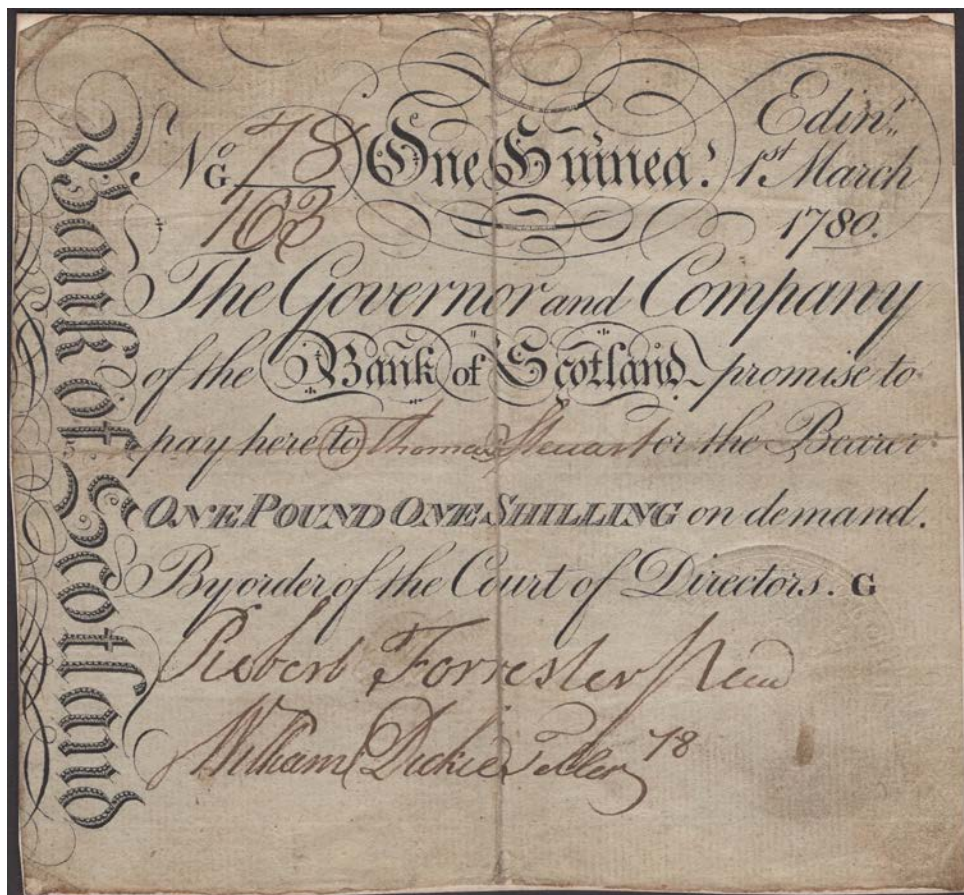 Bank of Scotland
No G 78/163 One Guinea. Edinr
1st March
1780.
The Governor and Company
of the Bank of Scotland promise to
pay here to Thomas Steuart or the Bearer
ONE POUND ONE SHILLING on demand.
By order of the Court of Directors. G
Robert Forrester
William Dickie Teller 78